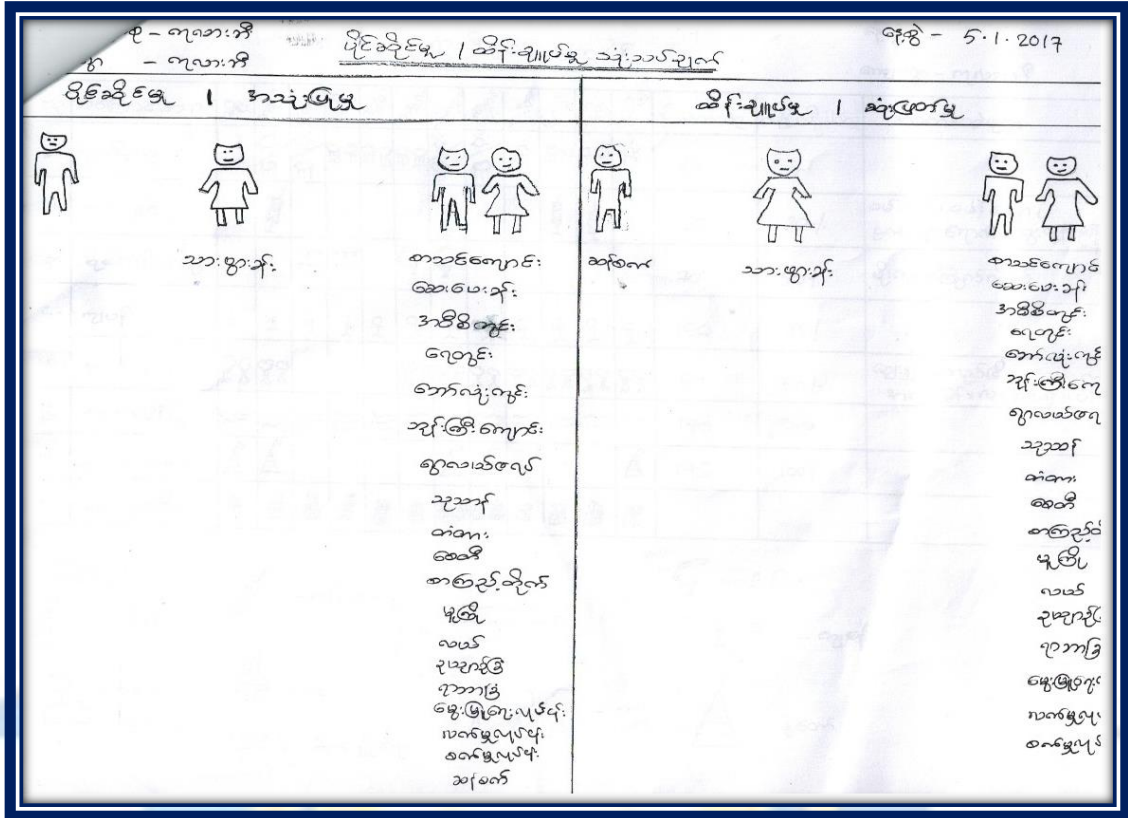 စု – ကုလားဘီ
ရွာ – ကုလားဘီ
ပိုင်ဆိုင်မှု / ထိန်းချုပ်မှု သုံးသပ်ချက်
နေ့စွဲ – 5.1.2017
ပိုင်ဆိုင်မှု / အသုံးပြုမှု
ထိန်းချုပ်မှု / ဆုံးဖြတ်မှု
သားဖွားခန်း
စာသင်ကျောင်း
ဆေးပေးခန်း
အဝီစိတွင်း
ရေတွင်း
ဘော်လုံးကွင်း
ဘုန်းကြီးကျောင်း
ရွာလယ်ဇရပ်
သုသာန်
တံတား
စေတီ
စာကြည့်တိုက်
မူကြို
လယ်
ဥယျာဉ်ခြံ
ရာဘာခြံ
မွေးမြူရေးလုပ်ငန်း
လက်မှုလုပ်ငန်း
စက်မှုလုပ်ငန်း
ဆန်စက်
ဆန်စက်
သားဖွားခန်း
စာသင်ကျောင်
ဆေးပေးခန်း
အဝီစိတွင်း
ရေတွင်း
ဘော်လုံးကွင်
ဘုန်းကြီးကျေ
ရွာလယ်ဇရ
သုသာန်
တံတား
စေတီ
စာကြည့်တ
မူကြို
လယ်
ဥယျာဉ်ခြ
ရာဘာခြ
မွေးမြူရေး
လက်မှုလု
စက်မှုလုပ်